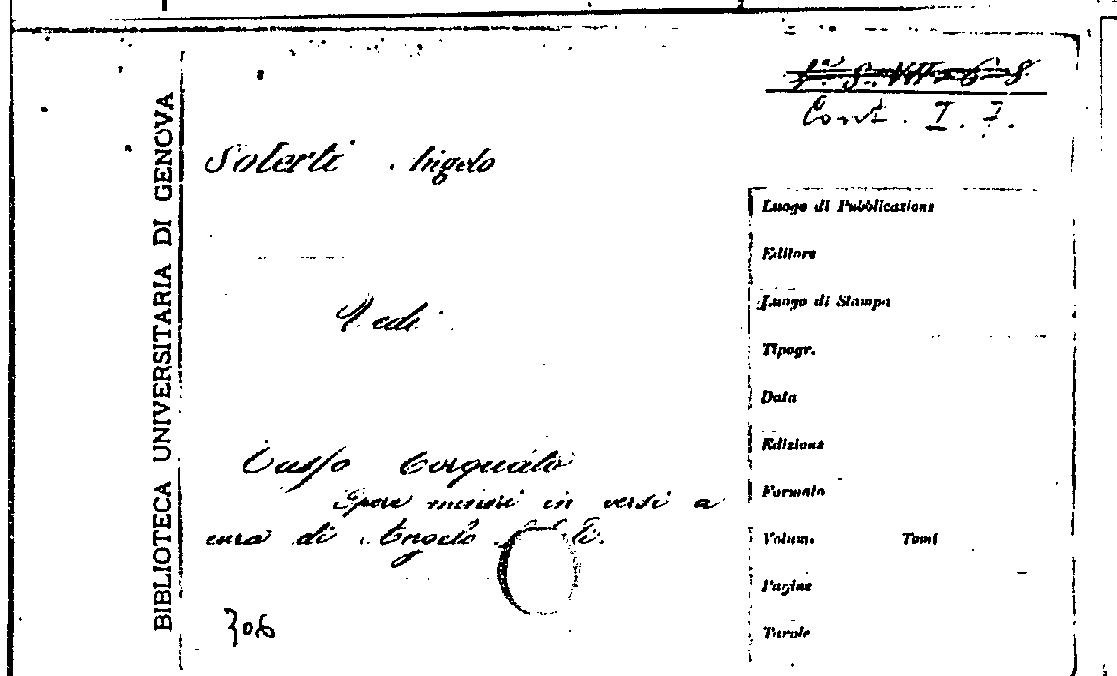 BIBLIOTECA UNIVERSITARIA DI GENOVA
Cont. I. 7.
Solerti Angelo
Vedi
Tasso Torquato
Opere minori in versi a
cura di Angelo
306
Luogo di Pubblicazione
Editore
Luogo di Stampa
Tipogr.
Data
Edizione
Formato
Volumi Tomi
Pagine
Tavole